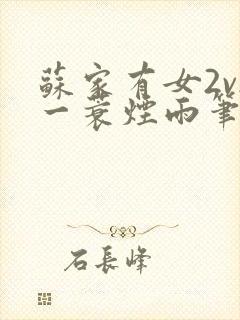 蘇家有女2v
一蓑煙雨筆
石長峰